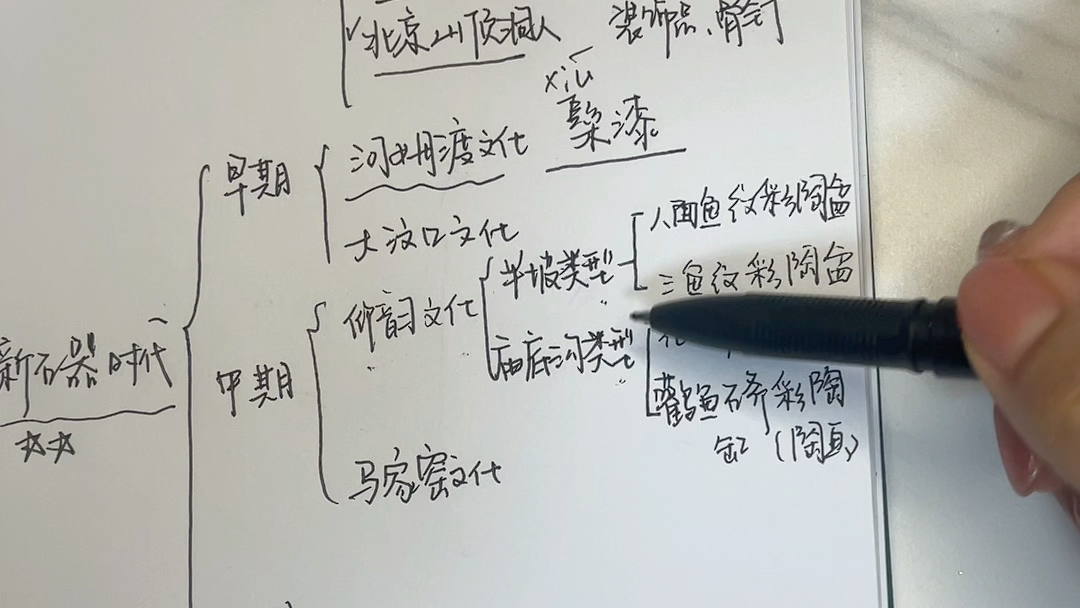 北京山顶洞人 装饰品、骨针
xiū
髹漆
早期 河姆渡文化
大汶口文化
人面鱼纹彩陶盆
半坡类型 三鱼纹彩陶盆
仰韶文化
新石器时代
庙底沟类型
中期
鹳鱼石斧彩陶
缸（陶画）
马家窑文化